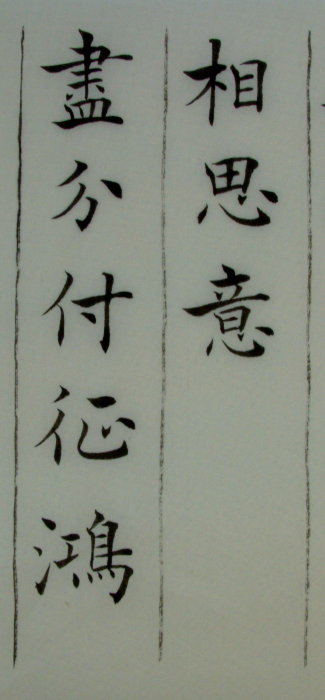 相思意
盡分付征鴻